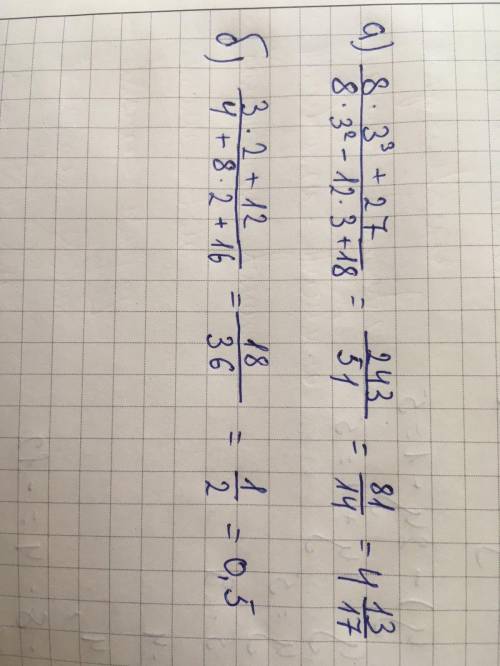 а) (8 · 3³ + 27)/(8 · 3² - 12 · 3 + 18) = 243/51 = 81/14 = 4 13/17
б) (3 · 2 + 12)/(4 + 8 · 2 + 16) = 18/36 = 1/2 = 0,5